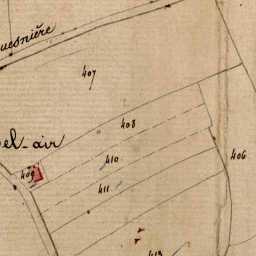 uesnière
407
408
el-air
410
406
409
411
413